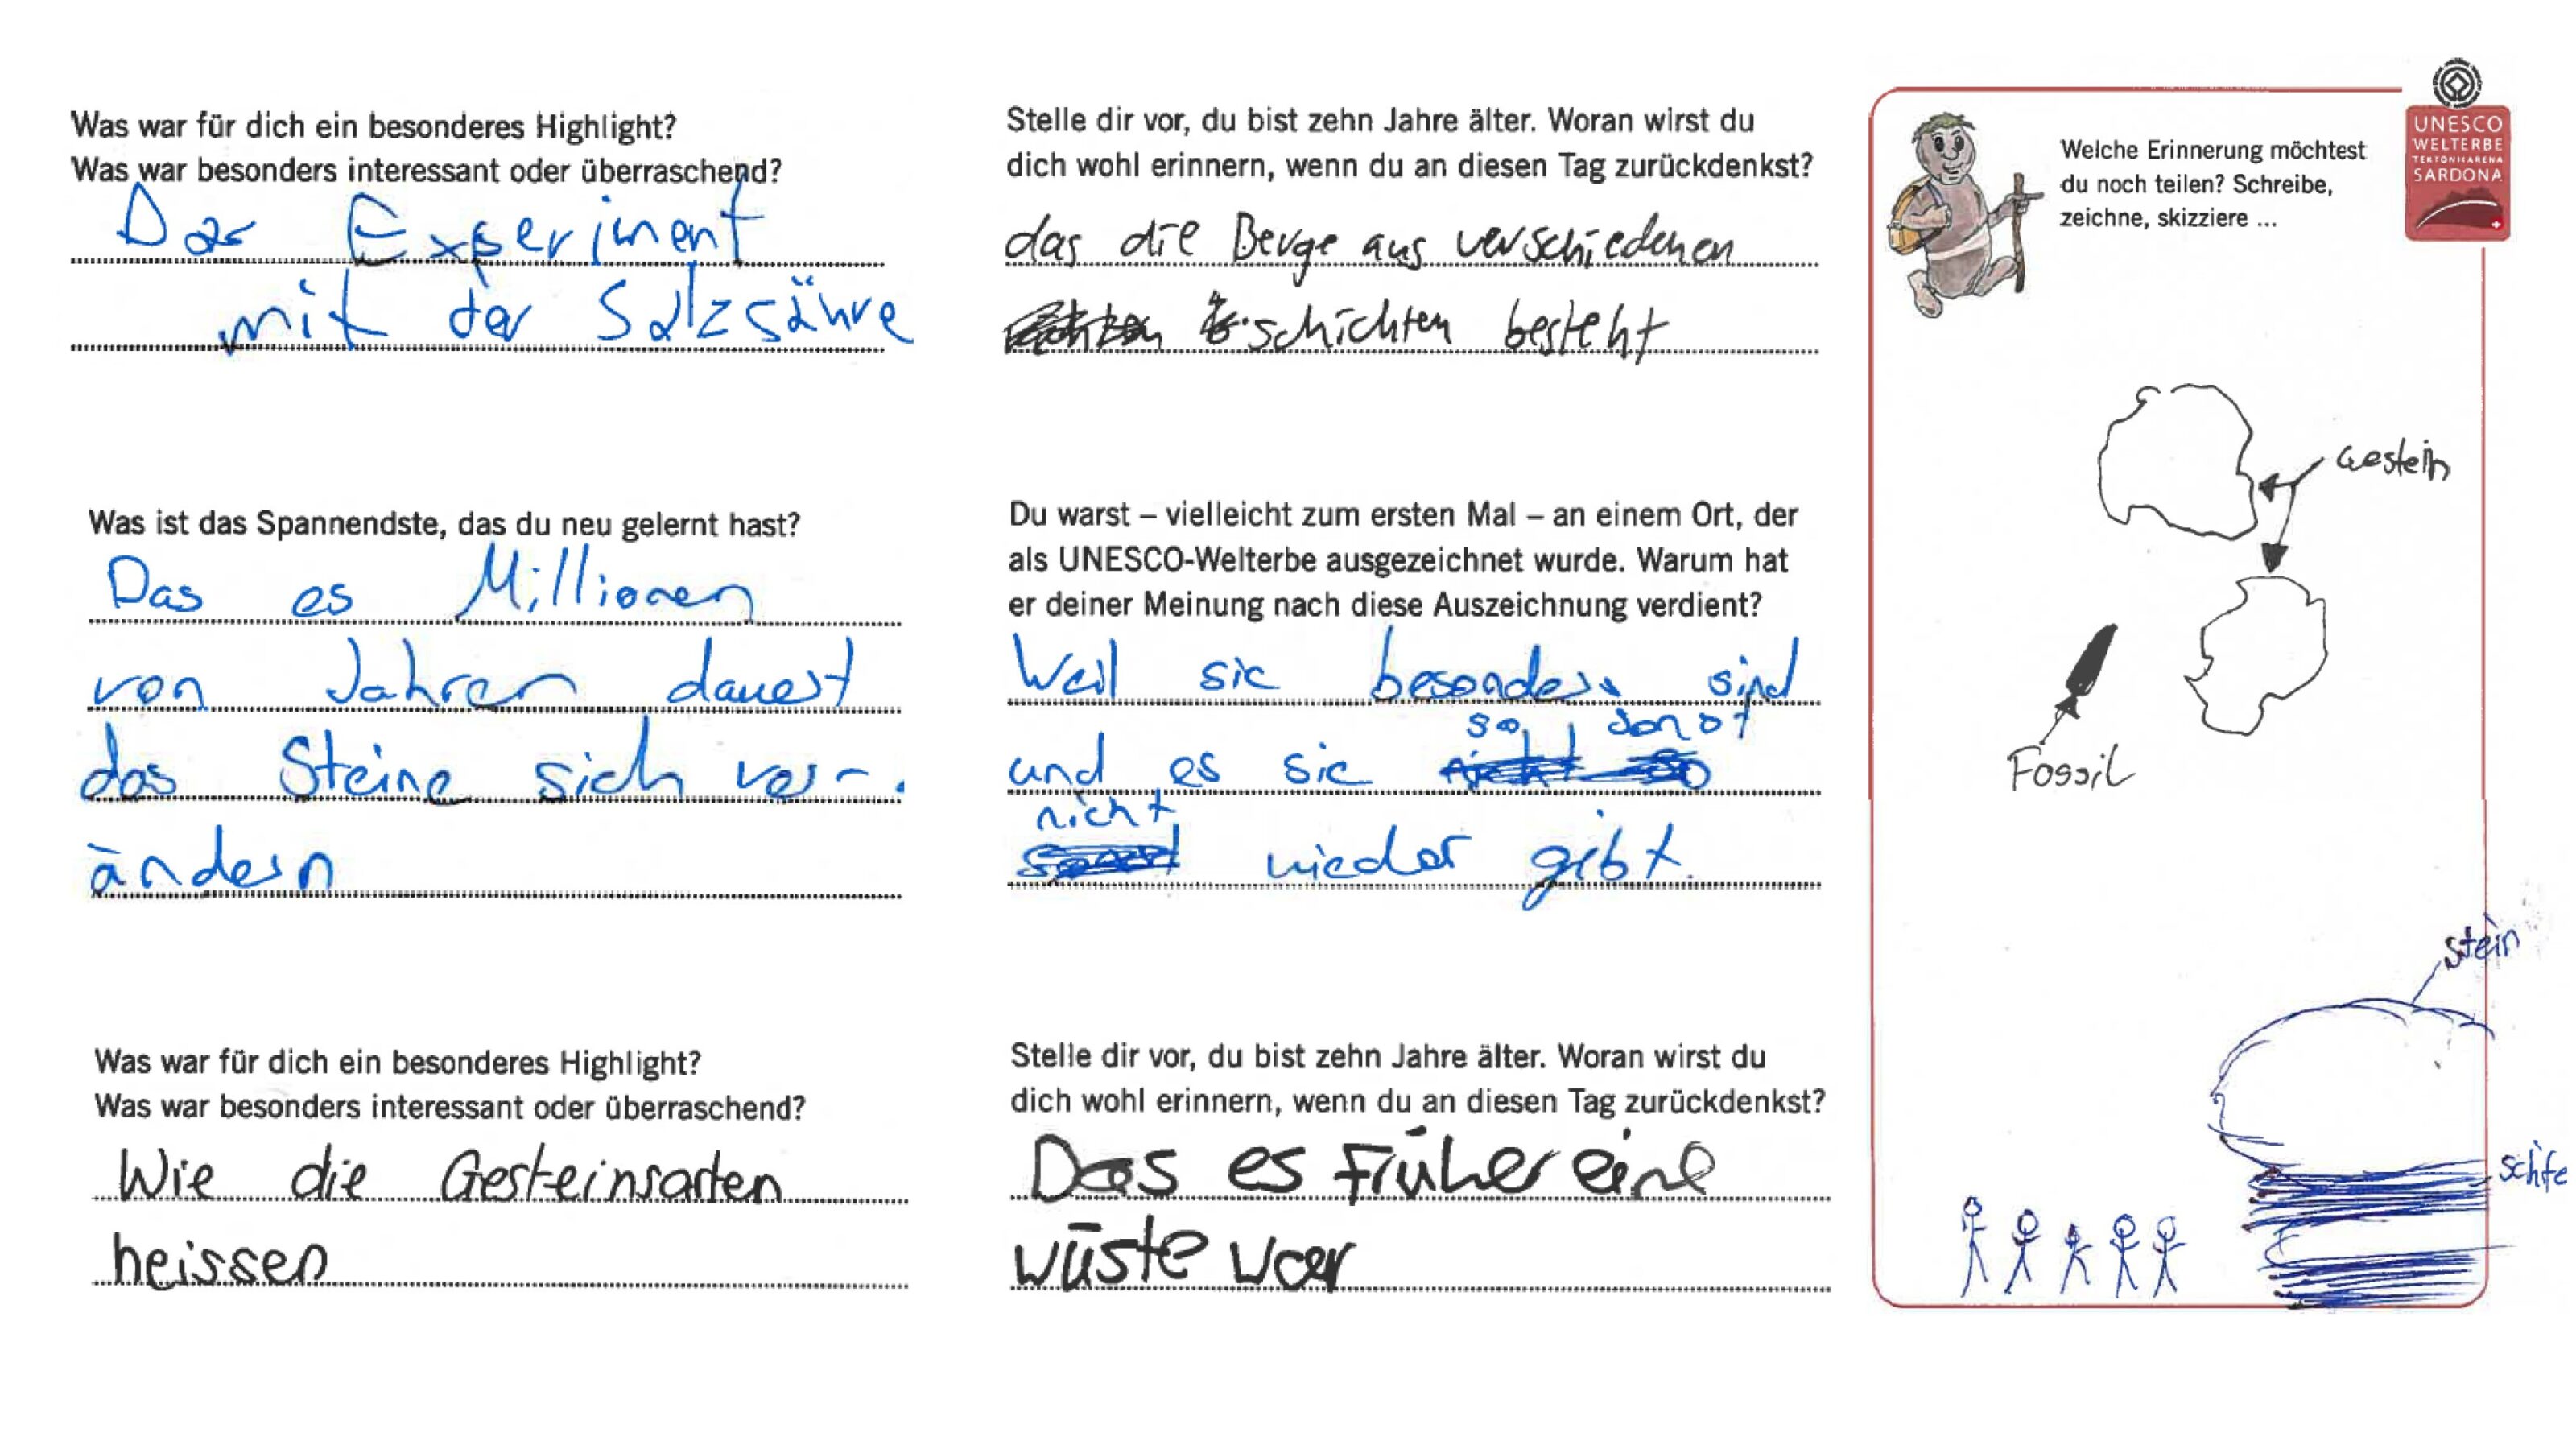 Was war für dich ein besonderes Highlight?
Was war besonders interessant oder überraschend?
Das Experiment
mit der Salzsäure
Was ist das Spannendste, das du neu gelernt hast?
Das es Millionen
von Jahren dauert
das Steine sich ver-
ändern
Was war für dich ein besonderes Highlight?
Was war besonders interessant oder überraschend?
Wie die Gesteinsarten
heissen
Stelle dir vor, du bist zehn Jahre älter. Woran wirst du
dich wohl erinnern, wenn du an diesen Tag zurückdenkst?
das die Berge aus verschiedenen
schichten besteht
Du warst – vielleicht zum ersten Mal – an einem Ort, der
als UNESCO-Welterbe ausgezeichnet wurde. Warum hat
er deiner Meinung nach diese Auszeichnung verdient?
Weil sie besonders sind
und es sie so sonst
nicht wieder gibt.
Stelle dir vor, du bist zehn Jahre älter. Woran wirst du
dich wohl erinnern, wenn du an diesen Tag zurückdenkst?
Das es Früher eine
wüste war
Welche Erinnerung möchtest
du noch teilen? Schreibe,
zeichne, skizziere ...
UNESCO
WELTERBE
TEKTONIKARENA
SARDONA
Gestein
Fossil
stein